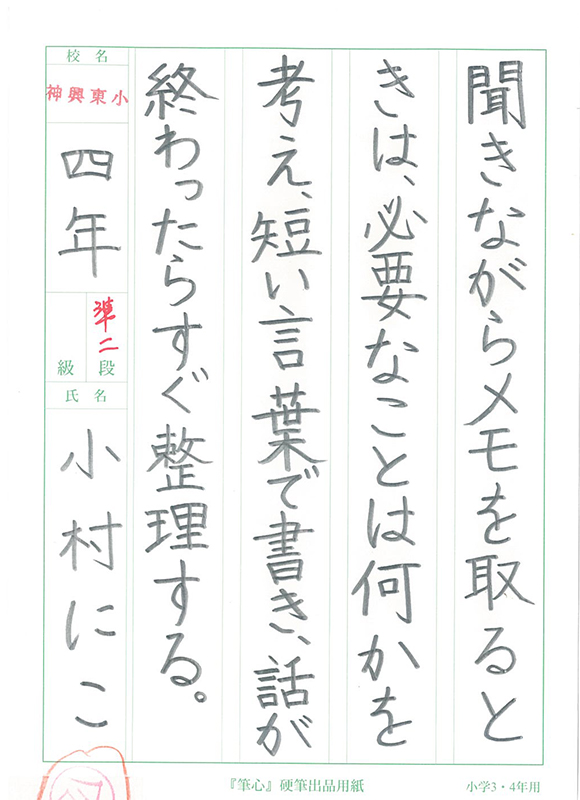 聞きながらメモを取ると
きは、必要なことは何かを
考え、短い言葉で書き、話が
終わったらすぐ整理する。
校名
神興東小
四年
準二
段
級
氏名
小村にこ
『筆心』硬筆出品用紙
小学3・4年用